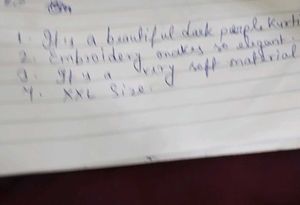 1. It is a beautiful dark purple Kurti
2. Embroidery makes so elegant.
3. It is a very soft material
4. XXL Size.